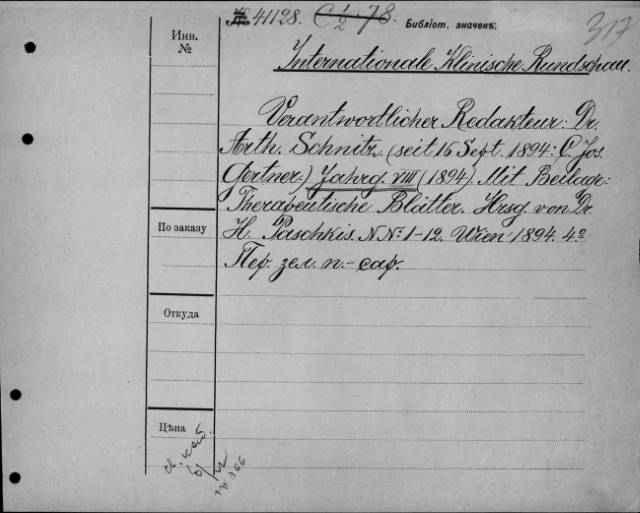 41128. C 1/2 78.
Библіот. значенъ:
317
Инв.
№
Internationale Klinische Rundschau.
Verantwortlicher Redakteur: Dr.
Arth. Schnitz. (seit 16 Sept. 1894: C. Jos.
Gertner.) Jahrg. VIII (1894). Mit Beilage:
Therapeutische Blätter. Hrsg. von Dr
H. Paschkis. N№ 1-12. Wien 1894. 4°
По заказу
Пер. зел. п.-саф.
Откуда
Цѣна